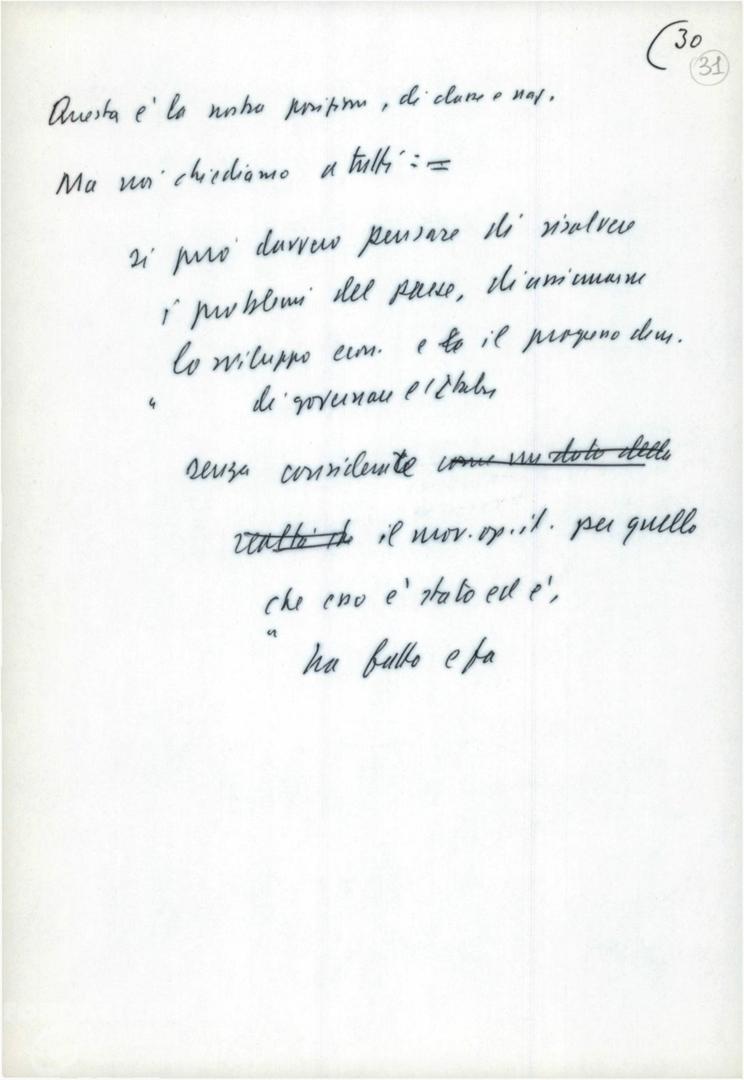 (30
31
Questa è la nostra posizione, di classe e naz.
Ma noi chiediamo a tutti : =
si può davvero pensare di risolvere
i problemi del paese, di assicurarne
lo sviluppo econ. e lo il progresso dem.
" di governare l'Italia
senza considerate come un dato della
realtà che il mov. op. it. per quello
che esso è stato ed è,
" ha fatto e fa